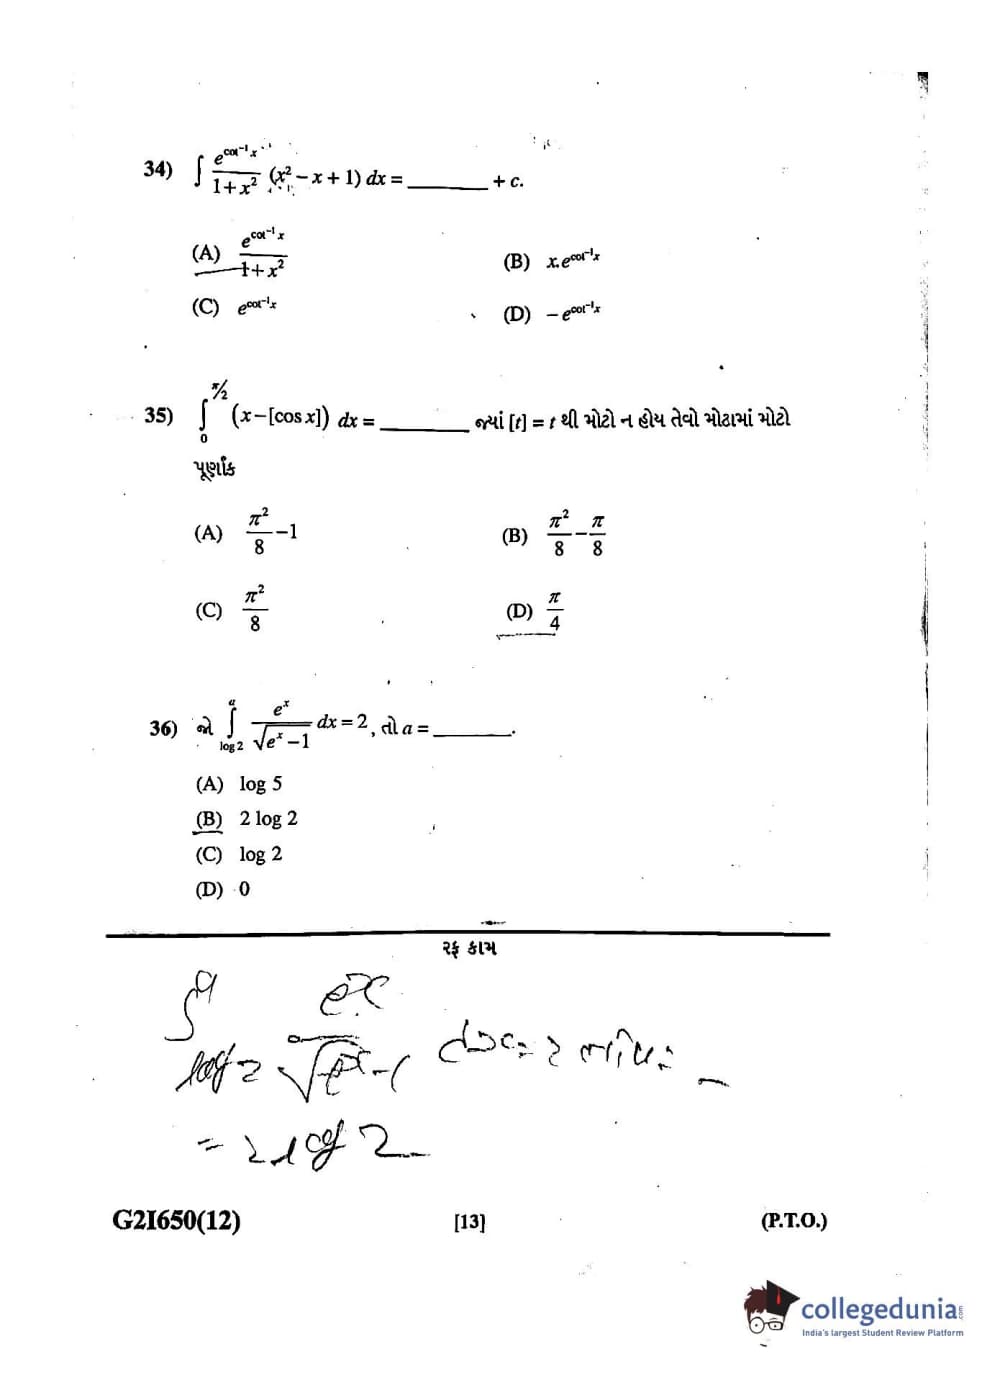 34) ∫ e^{cot⁻¹x} / 1+x² (x² – x + 1) dx = ______ + c.
(A) e^{cot⁻¹x} / 1+x² (B) x.e^{cot⁻¹x}
(C) e^{cot⁻¹x} (D) – e^{cot⁻¹x}
35) ∫₀^{π/2} (x–[cos x]) dx = ______ જ્યાં [t] = t થી મોટો ન હોય તેવો મોટામાં મોટો
પૂર્ણાંક
(A) π²/8 –1 (B) π²/8 – π/8
(C) π²/8 (D) π/4
36) જો ∫_{log 2}^{a} e^x / √e^x –1 dx = 2, તો a = ______.
(A) log 5
(B) 2 log 2
(C) log 2
(D) 0
રફ કામ
∫ e^x
log 2 √e^x -1 dx = 2
= 2 log 2
G2I650(12) [13] (P.T.O.)
collegedunia.com
India's largest Student Review Platform